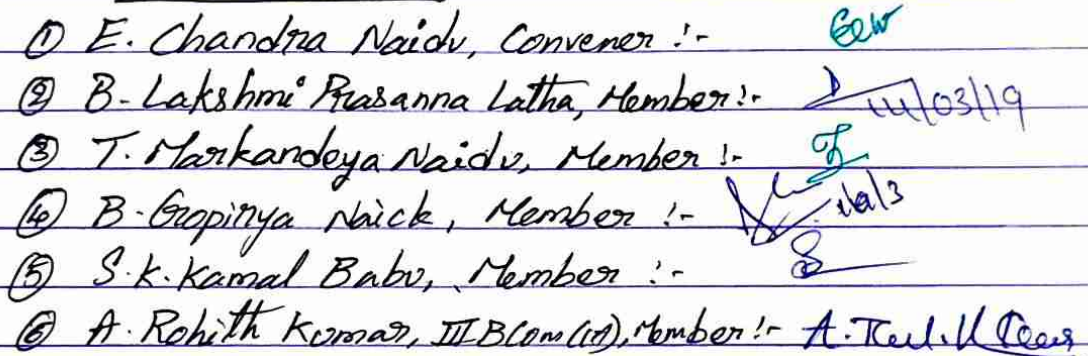 ① E. Chandra Naidu, Convener :-
② B. Lakshmi Prasanna Latha, Member :- 14/03/19
③ T. Markandeya Naidu, Member :-
④ B. Gropinya Naick, Member :-
⑤ S.K. Kamal Babu, Member :-
⑥ A. Rohith Kumar, III BCom (CA), Member :- A.